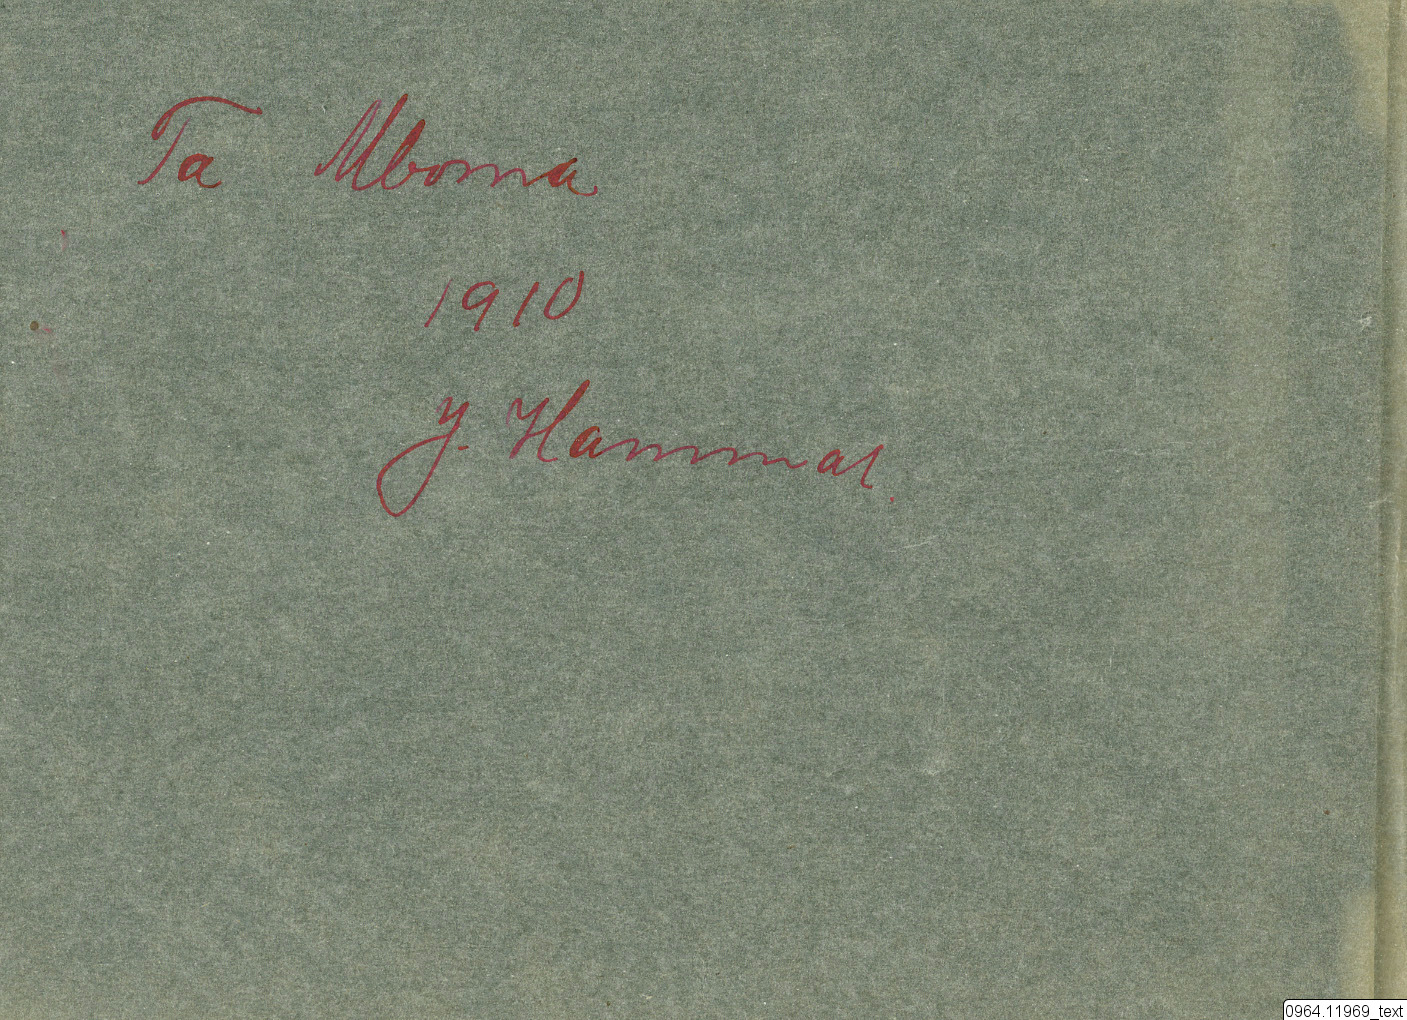 Ta Mboma
1910
J. Hammar.
0964.11969_text